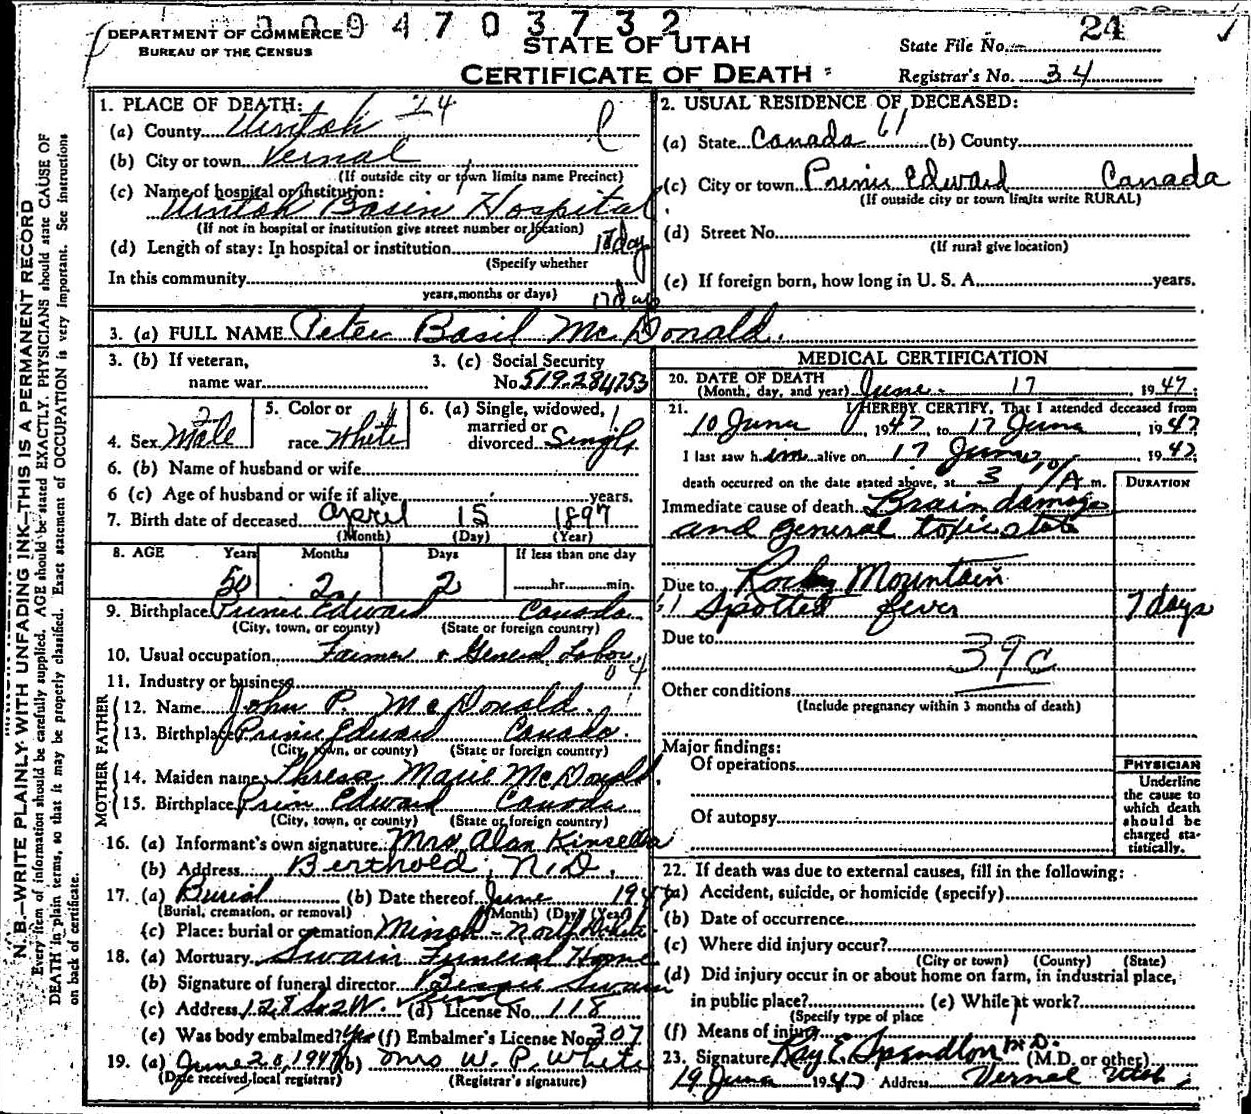 0094703732
DEPARTMENT OF COMMERCE
BUREAU OF THE CENSUS
STATE OF UTAH
CERTIFICATE OF DEATH
State File No. 24
Registrar's No. 34
N. B.—WRITE PLAINLY WITH UNFADING INK—THIS IS A PERMANENT RECORD
Every item of information should be carefully supplied. AGE should be stated EXACTLY. PHYSICIANS should state CAUSE OF
DEATH in plain terms, so that it may be properly classified. Exact statement of OCCUPATION is very important. See instructions
on back of certificate.
1. PLACE OF DEATH: 24
(a) County Uintah
(b) City or town Vernal
(If outside city or town limits name Precinct)
(c) Name of hospital or institution:
Uintah Basin Hospital
(If not in hospital or institution give street number or location)
(d) Length of stay: In hospital or institution day
(Specify whether
In this community
years, months or days) 17 days
2. USUAL RESIDENCE OF DECEASED:
(a) State Canada 61 (b) County
(c) City or town Prince Edward Canada
(If outside city or town limits write RURAL)
(d) Street No.
(If rural give location)
(e) If foreign born, how long in U. S. A. years.
3. (a) FULL NAME Peter Basil McDonald.
3. (b) If veteran,
name war
3. (c) Social Security
No 519-284753
4. Sex Male
5. Color or
race White
6. (a) Single, widowed,
married or
divorced Single
6. (b) Name of husband or wife
6 (c) Age of husband or wife if alive years.
7. Birth date of deceased April 15 1897
(Month) (Day) (Year)
8. AGE Years Months Days If less than one day
50 2 2 hr. min.
9. Birthplace Prince Edward Canada
(City, town, or county) (State or foreign country)
10. Usual occupation Farmer & General Labor
11. Industry or business
FATHER
12. Name John P. McDonald.
13. Birthplace Prince Edward Canada.
(City, town, or county) (State or foreign country)
MOTHER
14. Maiden name Thresa Marie McDonald.
15. Birthplace Prin Edward Canada
(City, town, or county) (State or foreign country)
16. (a) Informant's own signature Mrs Alan Kinsella
(b) Address Berthold, N.D.
17. (a) Burial (b) Date thereof June 1947
(Burial, cremation, or removal) (Month) (Day) (Year)
(c) Place: burial or cremation Minot - North Dakota
18. (a) Mortuary Swain Funeral Home
(b) Signature of funeral director Swain
(c) Address 128 So 2W. Vernal (d) License No. 118
(e) Was body embalmed? Yes (f) Embalmer's License No. 307
19. (a) June 20, 1947 (b) Mrs W. P. White
(Date received local registrar) (Registrar's signature)
MEDICAL CERTIFICATION
20. DATE OF DEATH
(Month, day, and year) June 17, 1947;
21. I HEREBY CERTIFY, That I attended deceased from
10 June 1947 to 17 June 1947
I last saw him alive on 17 June, 1947
death occurred on the date stated above, at 3 10/A m.
DURATION
Immediate cause of death Brain damage
and general toxic state
Due to Rocky Mountain
Spotted fever 7 days
Due to
39c
Other conditions
(Include pregnancy within 3 months of death)
Major findings:
Of operations
Of autopsy
PHYSICIAN
Underline
the cause to
which death
should be
charged sta-
tistically.
22. If death was due to external causes, fill in the following:
(a) Accident, suicide, or homicide (specify)
(b) Date of occurrence
(c) Where did injury occur?
(City or town) (County) (State)
(d) Did injury occur in or about home on farm, in industrial place,
in public place? (e) While at work?
(Specify type of place
(f) Means of injury
23. Signature Ray E. Spendlove M.D. (M.D. or other)
19 June 1947 Address Vernal Utah